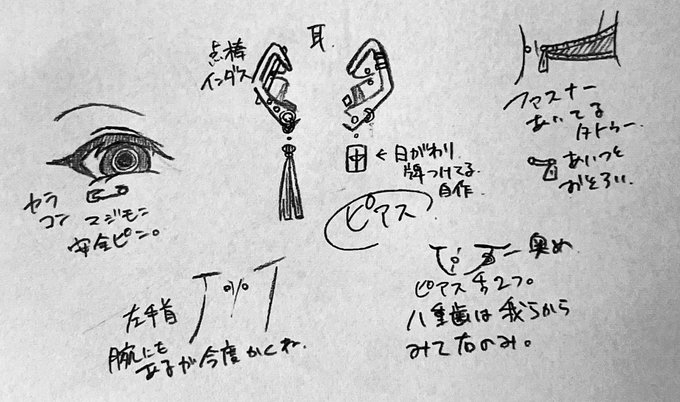 点棒
インダス
耳
←日がわり
牌つけてる
自作
中
ピアス
ファスナー
あいてる
タトゥー
あいつと
おそろい。
カラ
コン
マジモン
安全ピン。
左手首
腕にも
あるが今度かくね.
奥め
ピアス
2つ。
八重歯は我らから
みて右のみ。